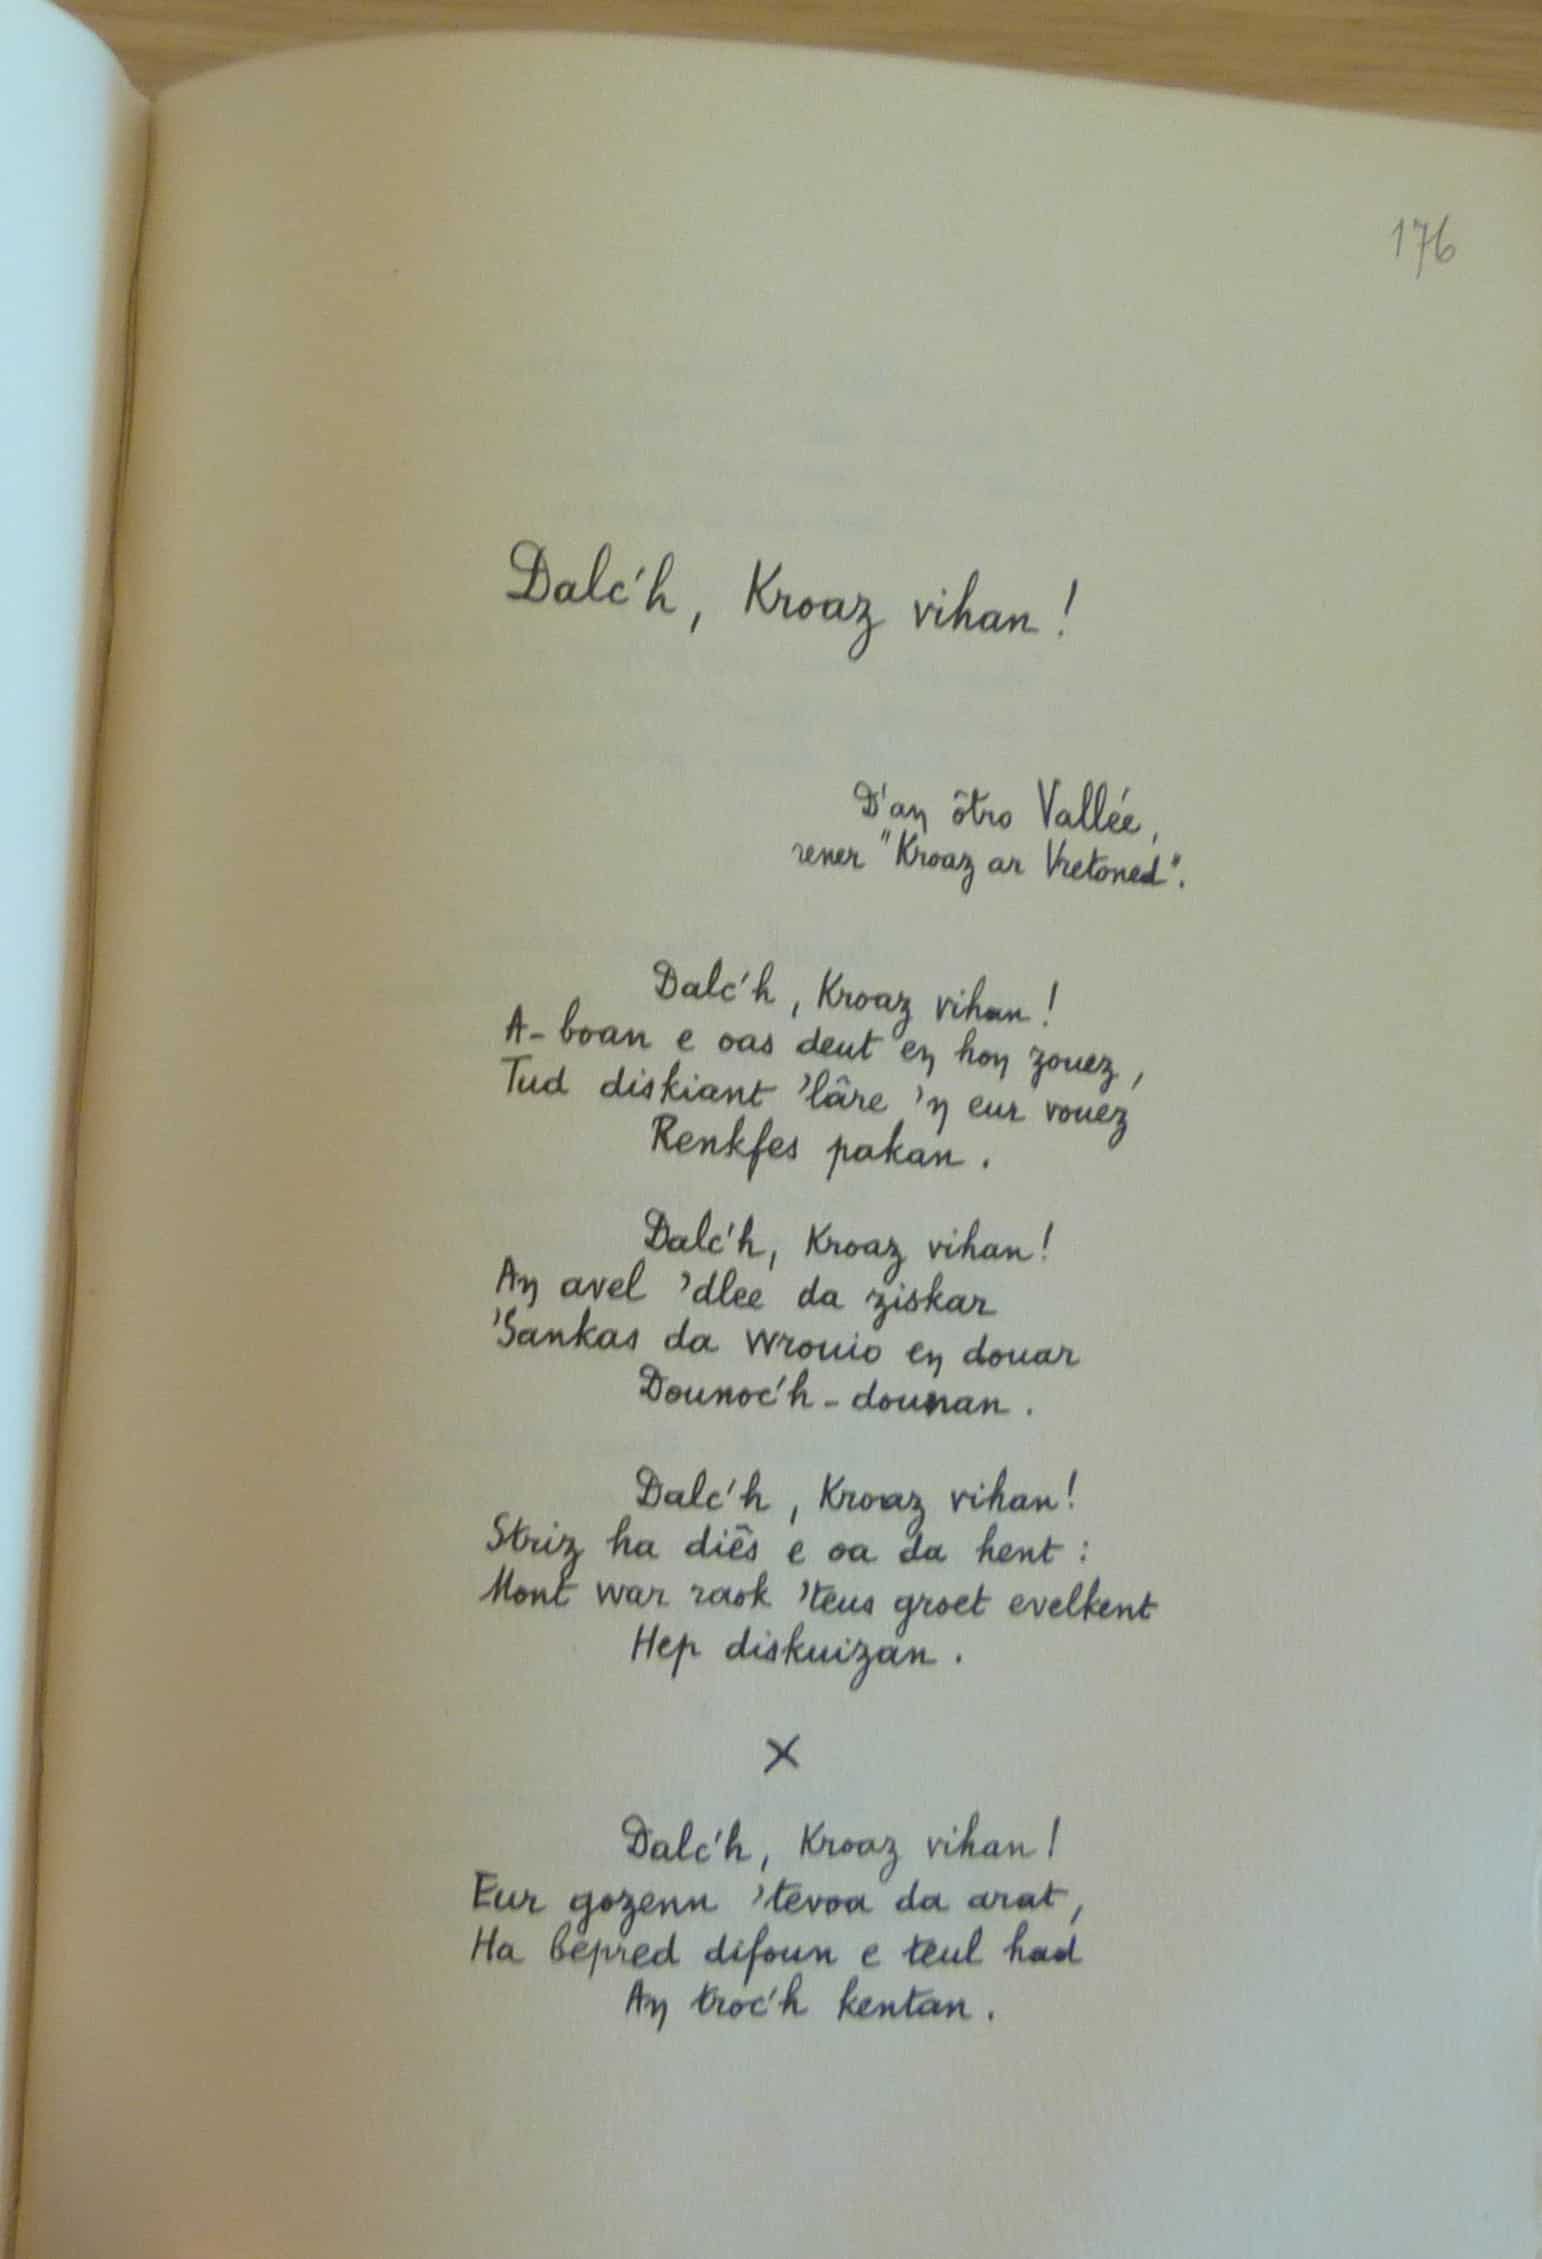 176
Dalc'h, Kroaz vihan!
D'aŋ ôtro Vallée,
rener "Kroaz ar Vretoned".
Dalc'h, Kroaz vihan!
A-boan e oas deut eŋ hoŋ zouez,
Tud diskiant 'lâre 'ŋ eur vouez
Renkfes pakan.
Dalc'h, Kroaz vihan!
Aŋ avel 'dlee da ziskar
'Sankas da wrouio eŋ douar
Dounoc'h-dounan.
Dalc'h, Kroaz vihan!
Striz ha diês e oa da hent:
Mont war raok 'teus groet evelkent
Hep diskuizan.
X
Dalc'h, Kroaz vihan!
Eur gozenn 'tevoa da arat,
Ha bepred difoun e teul had
Aŋ troc'h kentan.